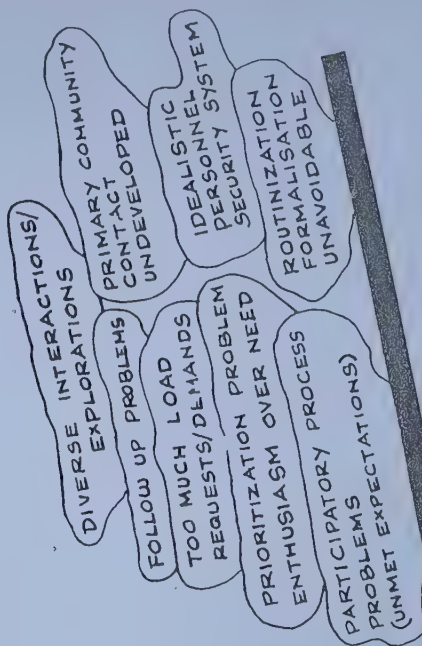 DIVERSE INTERACTIONS/
EXPLORATIONS
FOLLOW UP PROBLEMS
TOO MUCH LOAD
REQUESTS/DEMANDS
PRIORITIZATION PROBLEM
ENTHUSIASM OVER NEED
PARTICIPATORY PROCESS
PROBLEMS
(UNMET EXPECTATIONS)
PRIMARY COMMUNITY
CONTACT
UNDEVELOPED
IDEALISTIC
PERSONNEL
SECURITY SYSTEM
ROUTINIZATION
FORMALISATION
UNAVOIDABLE